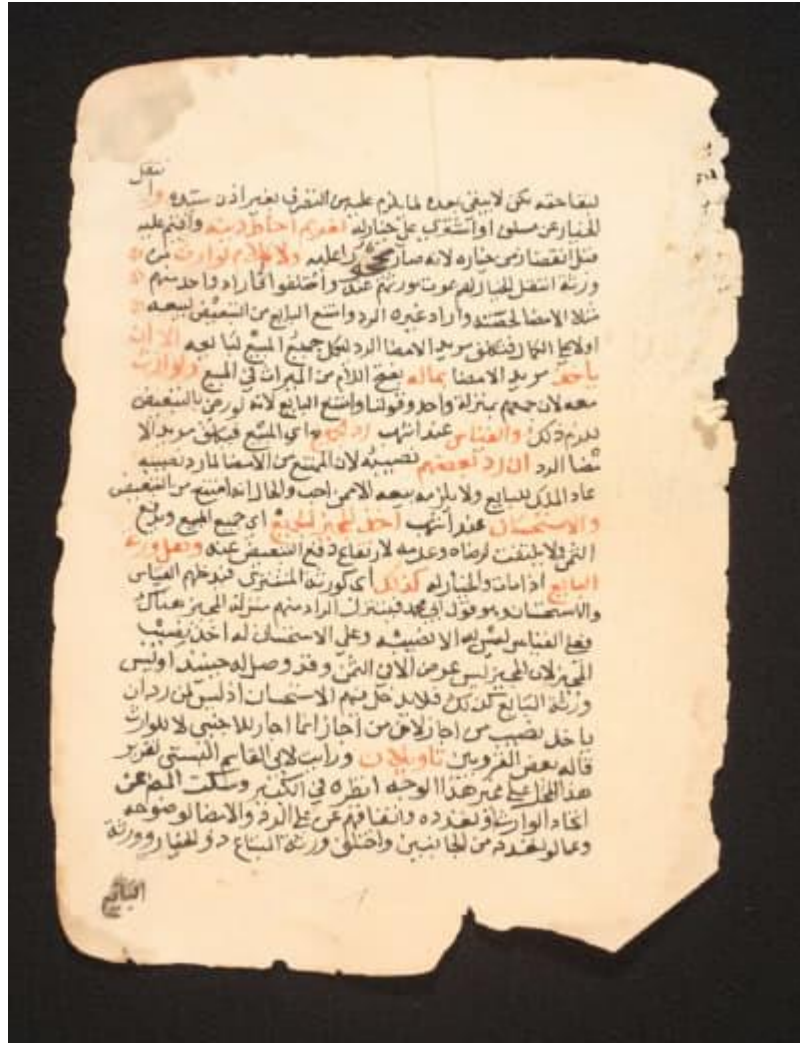 ينتقل
لبقا حقه لكن لا يبقى بعده لما يلزم عليه من التصرف بغير اذن سيده وا
الخيار عن مسلوب او اشترى على خيار له لغريم احاط دينه وا قيم عليه
قبل انقضا زمن خياره لانه صار عليه ولا كلام لوارث من
ورثة انتقل الخيار لهم بموت مورثهم عنه واختلفوا فاراد واحد منهم
مثلا الامضا لحصته واراد غيره الرد وامتنع البايع من التبعيض لبيعه
اولا يجا الكمال مريد الامضا الرد لكل جميع المبيع لبايعه الا ان
ياخذ مريد الامضا بماله بفتح اللام من الميراث في المبيع ولوارث
معه لان جميعهم بمنزلة واحد وقولنا وامتنع البايع لانه لو رضي بالتبعيض
لزم ذلك والقياس عند اشهب رد الجميع اي المبيع فيكلف مريد الا
مضا الرد ان رد بعضهم نصيبه لان الممتنع من الامضا لما رد نصيبه
عاد الملك للبايع ولا يلزمه بيعه الا ممن احب والحال انه امتنع من التبعيض
والاستحسان عند اشهب اخذ المجيز الجميع اي جميع المبيع ويدفع
الثمن ولا يلتفت لرضاه وعدمه لارتفاع دفع التبعيض عنه وهل ورثة
البايع اذا مات والخيار له كذلك اي كورثة المشتري فيدخلهم القياس
والاستحسان وهو قول ابي محمد فينزل الراد منهم منزلة المجيز هناك
فعلى القياس ليس له الا نصيبه وعلى الاستحسان له اخذ نصيب
المجيز لان المجيز ليس عوض الا في الثمن وقد وصل له حينئذ اوليس
ورثة البايع كذلك فلا يدخل فيهم الاستحسان اذ ليس لمن رد ان
ياخذ نصيب من اجاز لان من اجاز انما اجاز للاجنبي لا للوارث
قاله بعض القرويين تاويلان ورايت لابي القاسم البستي تقرير
هذا المحل على غير هذا الوجه انظره في الكبير وسكت المص عن
اتحاد الوارث وتعدده واتفاقهم عن على الرد والامضا لوضوحه
وعما لو تعدد من الجانبين واختلف ورثة البتاع ذو الخيار وورثة
البايع